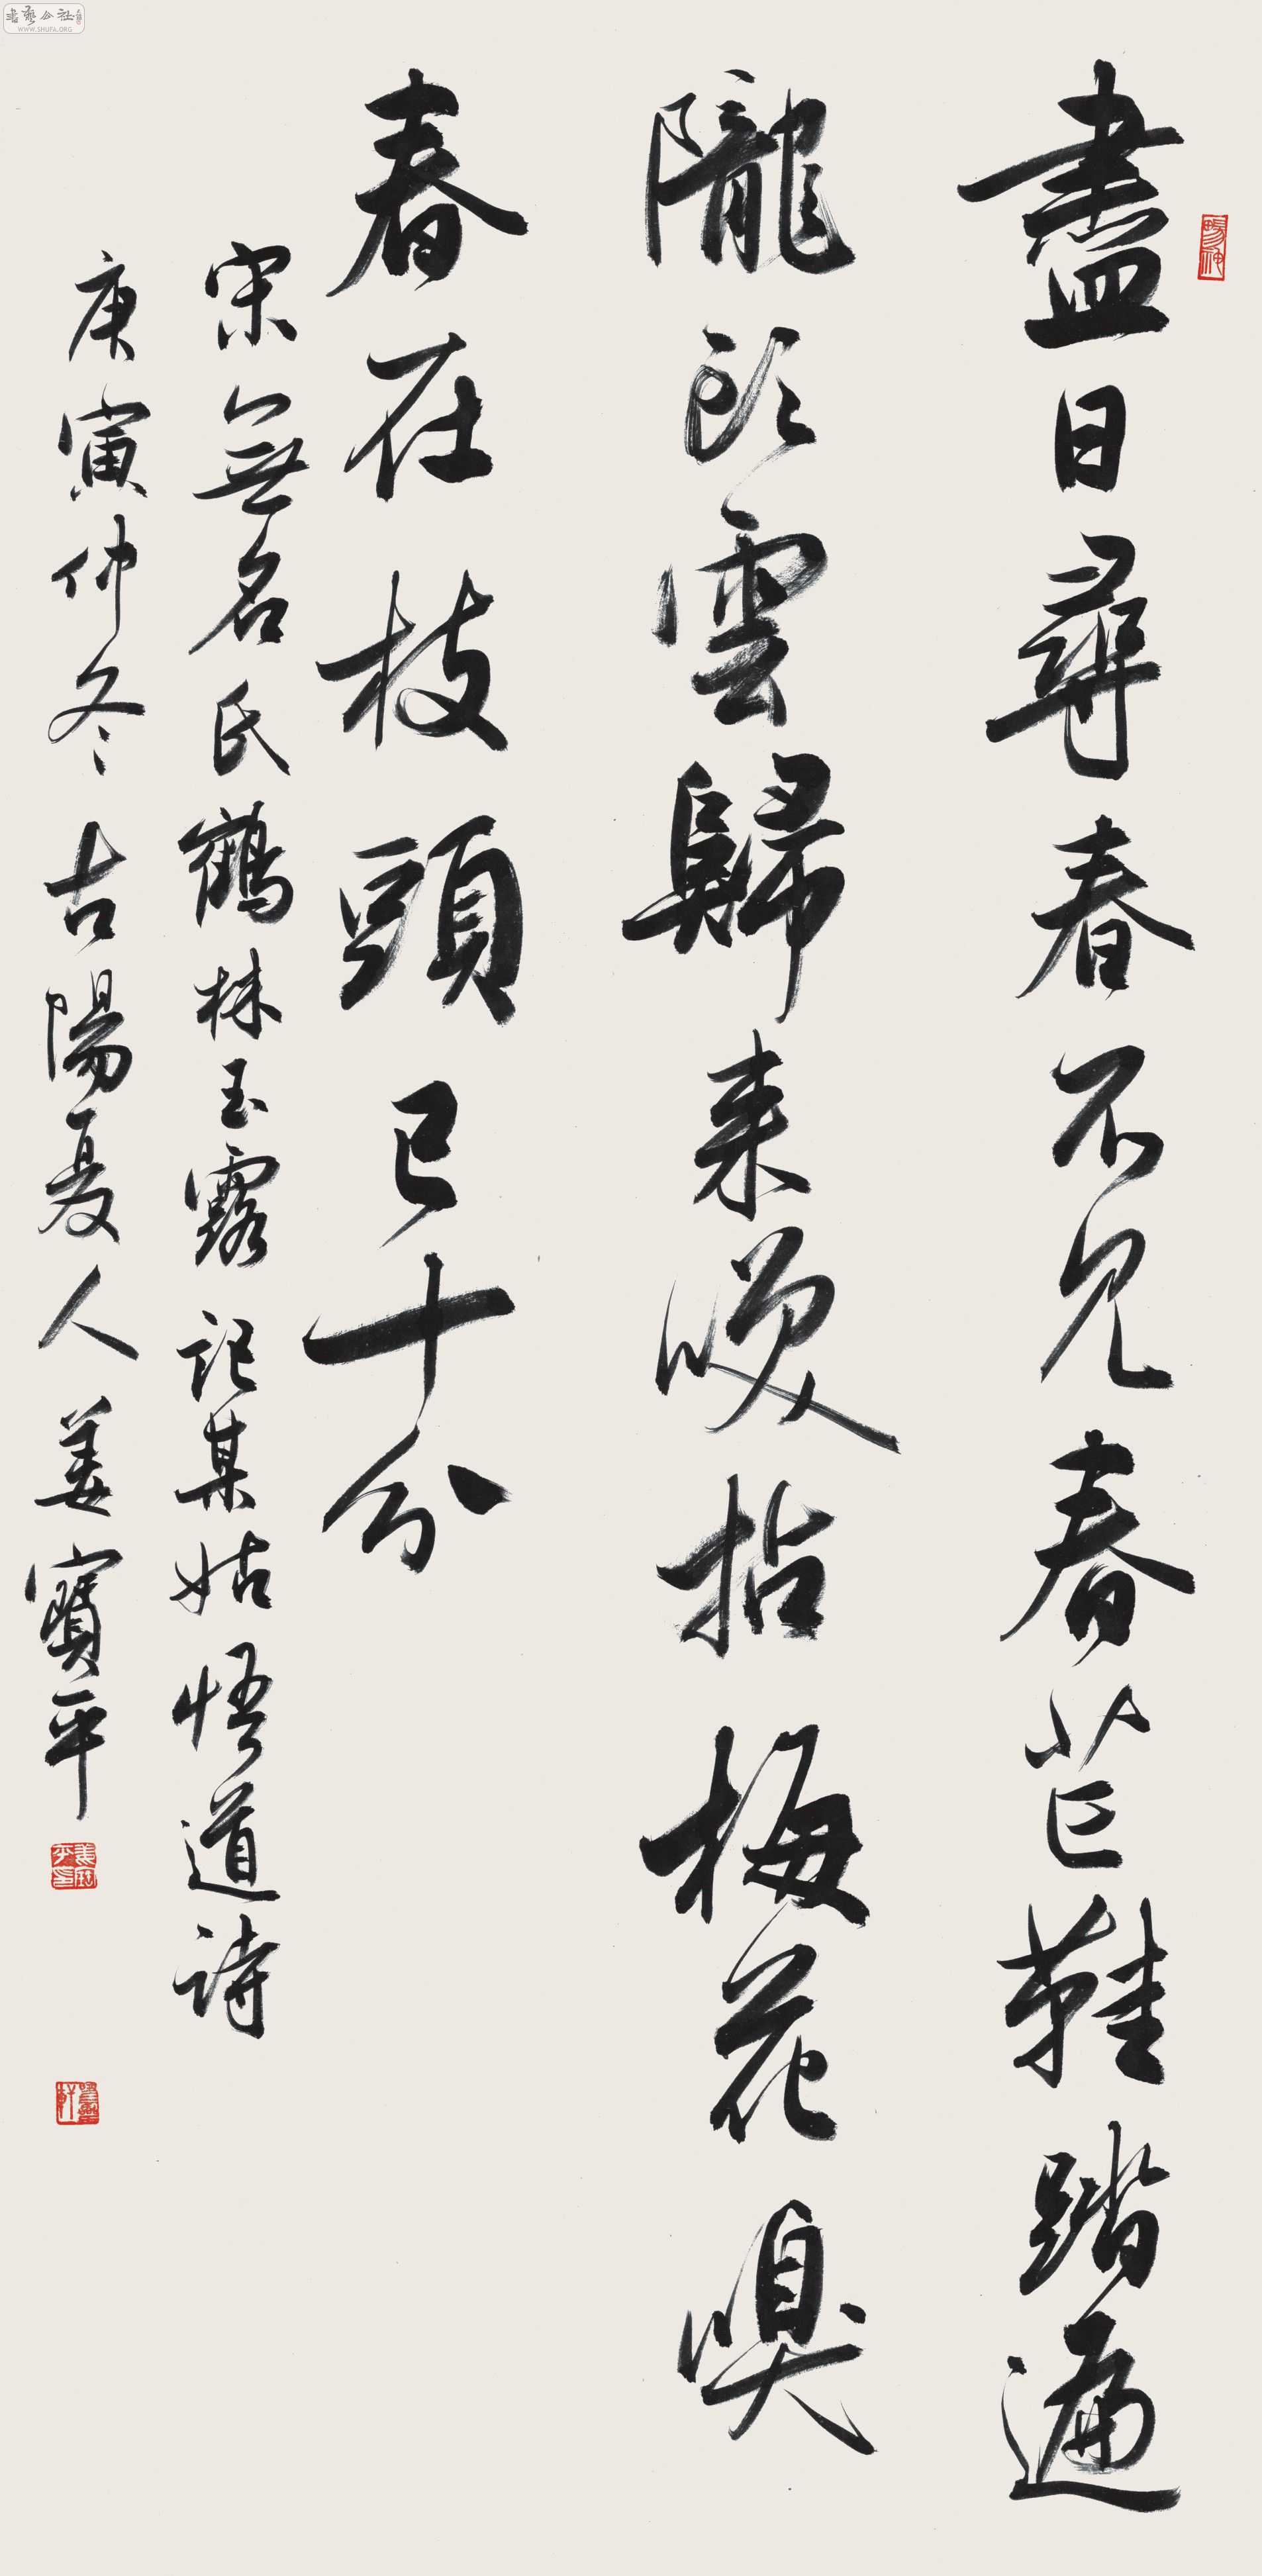 盡日尋春不見春芒鞋踏遍
隴頭雲歸来笑拈梅花嗅
春在枝頭已十分
宋無名氏鶴林玉露記某姑悟道詩
庚寅仲冬古陽夏人姜寶平
書藝公社
WWW.SHUFA.ORG